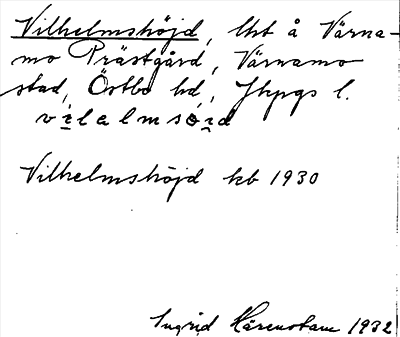 Vilhelmshöjd, lht å Värna-
mo Prästgård, Värnamo
stad, Östbo hd, Jkpgs l.
vilalmsöid
Vilhelmshöjd kb 1930
Ingrid Härenstam 1932